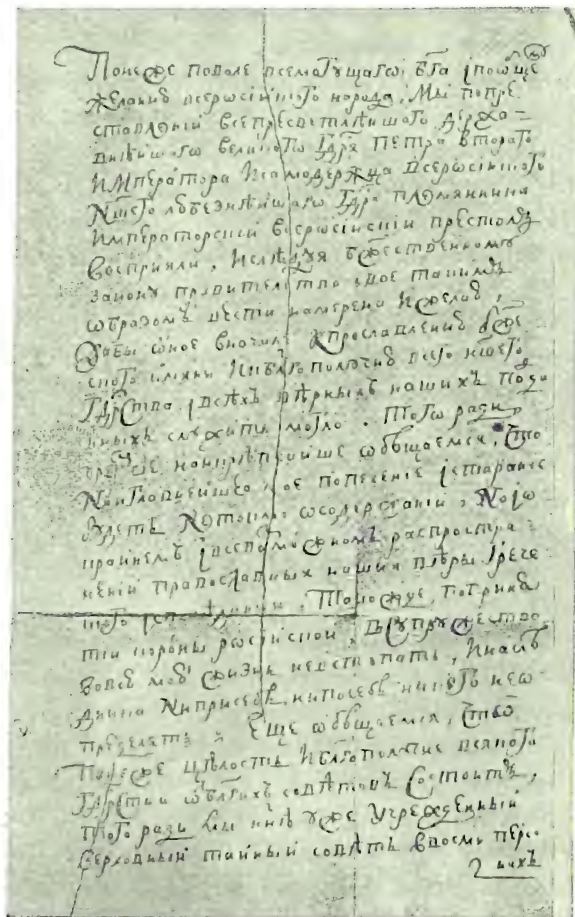 Понеже поволе всемогущаго бга іпоѡще
желанию всеросиіского народа, Мы попре
ставлениі всепресветлѣишого держа=
внѣишаго великого Гдря Петра второго
Императора Исамодержца Всеросиіского
Ншего любезнѣишаго Гдря племянника
Императорскиі всеросиіскиі престолъ
восприяли, Ислѣдуя бжественному
закону правителство свое такимъ
ѡбразомъ вести намерена и желаю,
Дабы ѡное вначале кпрославлению бже
ского імяни Икблгополучию всего ншего
Гдрства івсѣхъ вѣрныхъ нашихъ подд
нныхъ служить могло. Того ради,
чрезъ сие наикрѣпчаише ѡбѣщаемся, Что
Наиглавнеишее мое попечение істарание
будетъ Нетокмо ѡсодержаниі, Ноіѡ
краинемъ івсевозможномъ распростра=
нениі православныя нашия вѣры Грече
ского ісповѣдания, Такожде, поприня
тиі короны росиіскоі, Всупружество
вовсю мою жизнь невступать, Инаслѣ
дника Ниприсебѣ, нипосебѣ никого неѡ
пределять. Еще ѡбѣщаемся, Что
Понеже цѣлость Иблгополучие всякого
Гдрства ѡтблгихъ совѣтовъ Состоитъ,
Того ради мы ннѣ уже Учрежденныі
Верховныі таиныі совѣтъ ввосми персо
нахъ